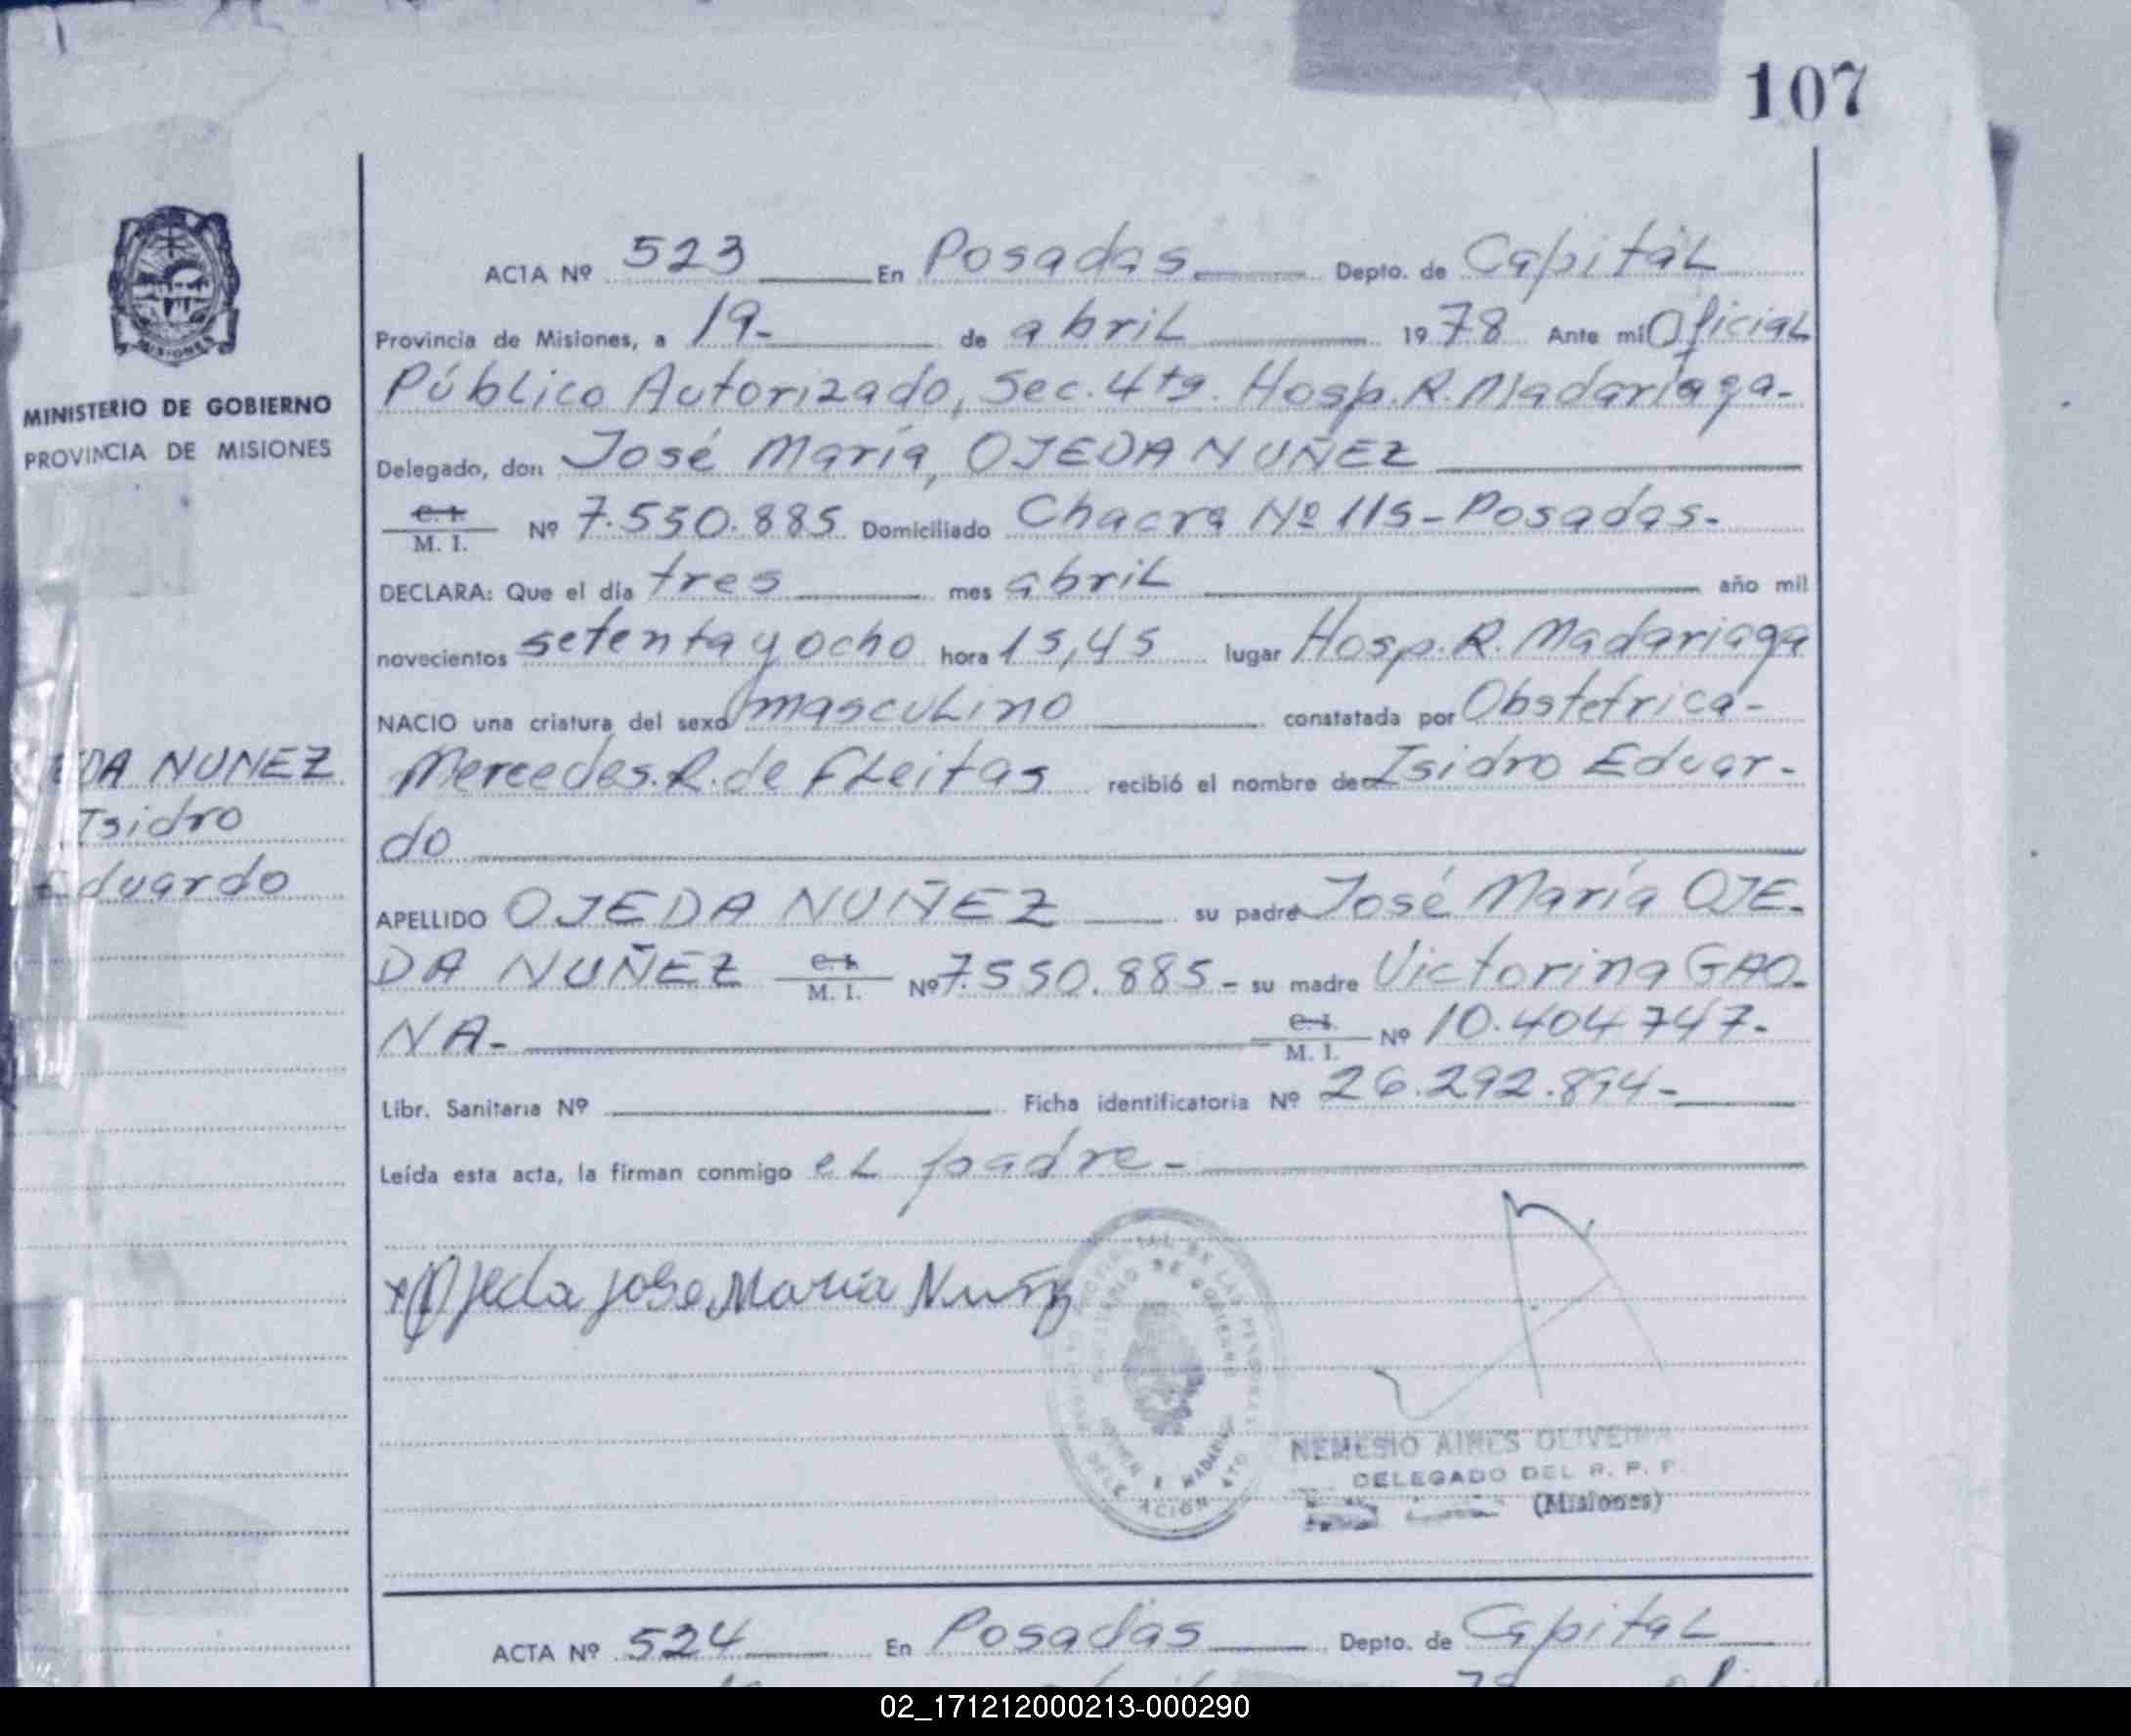 107
ACTA Nº 523 En Posadas Depto. de Capital
Provincia de Misiones, a 19- de abril 1978 Ante mi Oficial
Público Autorizado, Sec. 4ta. Hosp. R. Madariaga-
Delegado, don José María, OJEDA NUÑEZ
C. I.
M. I. Nº 7.550.885 Domiciliado Chacra Nº 115-Posadas-
DECLARA: Que el día tres mes abril año mil
novecientos setenta y ocho hora 15,45 lugar Hosp. R. Madariaga
NACIO una criatura del sexo masculino constatada por Obstetrica-
Mercedes. R. de FLeitas recibió el nombre de Isidro Eduar-
do
APELLIDO OJEDA NUÑEZ su padre José María OJE-
DA NUÑEZ C. I.
M. I. Nº 7.550.885- su madre Victorina GAO-
NA- C. I.
M. I. Nº 10.404747-
Libr. Sanitaria Nº Ficha identificatoria Nº 26.292.894-
Leída esta acta, la firman conmigo el padre-
Ojeda Jose Maria Nuñz
NEMESIO AIRES OLIVEIRA
DELEGADO DEL R. P. P.
(Misiones)
MISIONES
MINISTERIO DE GOBIERNO
PROVINCIA DE MISIONES
DA NUNEZ
Isidro
Eduardo
ACTA Nº 524 En Posadas Depto. de Capital
02_171212000213-000290